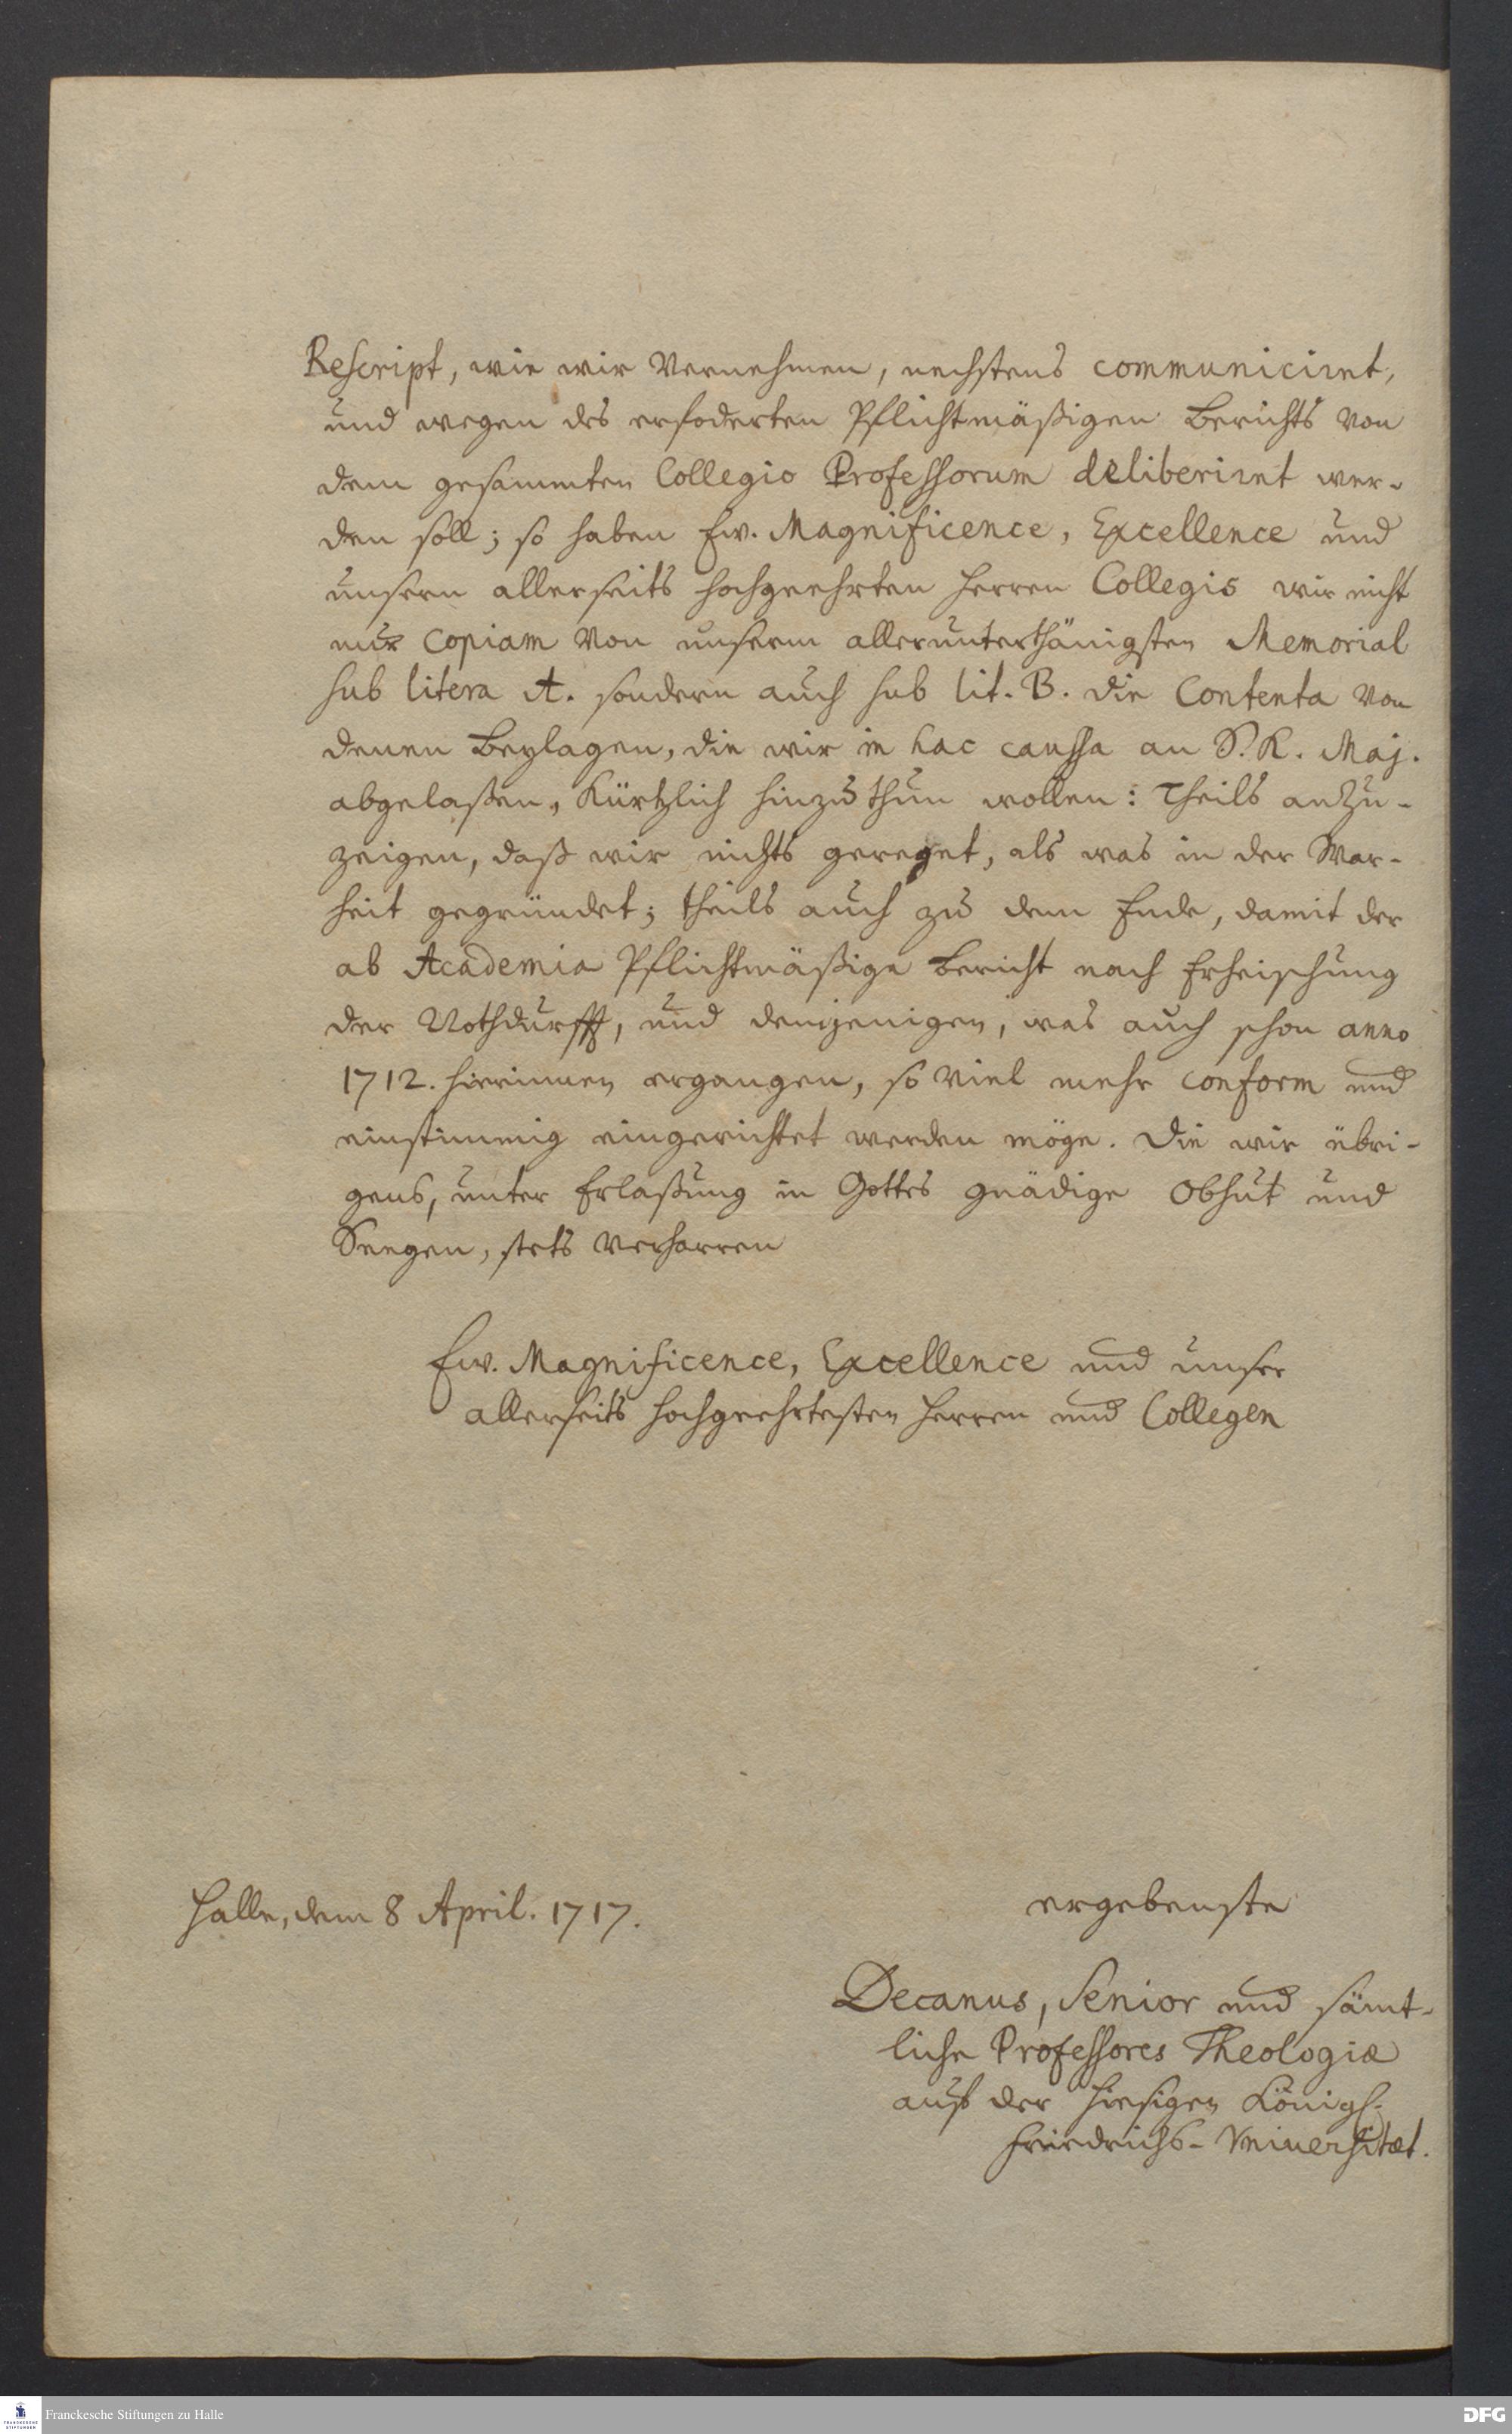 Rescript, wie wir vernehmen, nechstens communiciret,
und wegen des erfoderten Pflichtmäßigen Berichts von
dem gesammten Collegio Professorum deliberiret wer-
den soll; so haben Ew. Magnificence, Excellence und
unsern allerseits hochgeehrten Herren Collegis wir nicht
nur Copiam von unserm allerunterthänigsten Memorial
sub litera A. sondern auch sub lit. B. die Contenta von
denen Beylagen, die wir in hac caussa an S. K. Maj.
abgelaßen, Kürtzlich hinzu thun wollen: Theils anzu-
zeigen, daß wir nichts gereget, als was in der War-
heit gegründet; theils auch zu dem Ende, damit der
ab Academia Pflichtmäßige Bericht nach Erheischung
der Nothdurfft, und demjenigen, was auch schon anno
1712. hierinnen ergangen, so viel mehr conform und
einstimmig eingerichtet werden möge. Die wir übri-
gens, unter Erlaßung in Gottes gnädige Obhut und
Seegen, stets verharren
Ew. Magnificence, Excellence und unser
allerseits hochgeehrtesten Herren und Collegen
Halle, dem 8 April. 1717.
ergebenste
Decanus, Senior und sämt-
liche Professores Theologiæ
auf der hiesigen Königl.
Friedrichs-Vniversitæt.
Franckesche Stiftungen zu Halle
FRANCKESCHE STIFTUNGEN
DFG